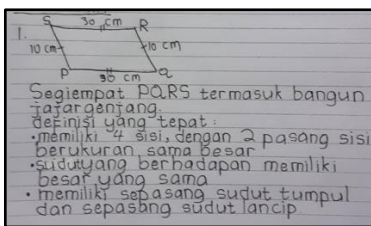 1.
S 30 cm R
10 cm 10 cm
P 30 cm Q
Segiempat PQRS termasuk bangun
jajargenjang.
definisi yang tepat :
• memiliki 4 sisi, dengan 2 pasang sisi
berukuran sama besar
• sudut yang berhadapan memiliki
besar yang sama
• memiliki sepasang sudut tumpul
dan sepasang sudut lancip